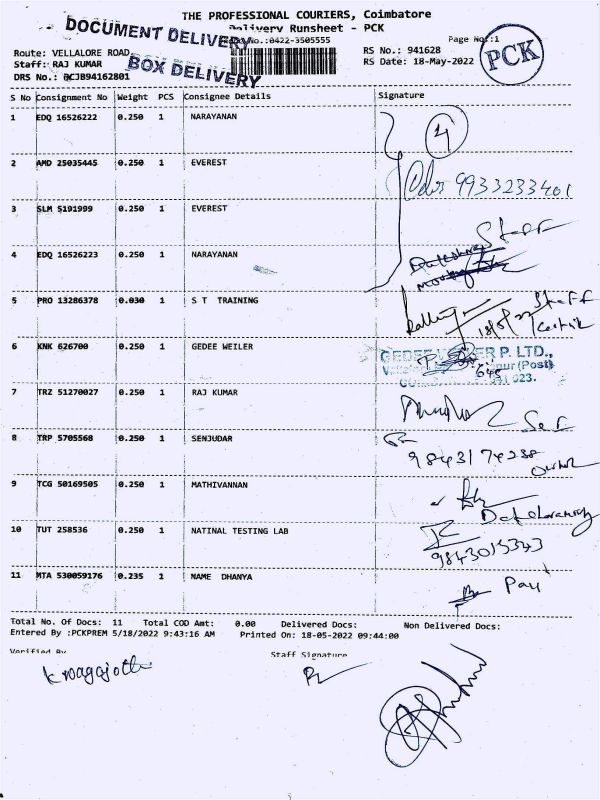 THE PROFESSIONAL COURIERS, Coimbatore
Delivery Runsheet - PCK
DOCUMENT DELIVERY
BOX DELIVERY
No.:0422-3505555
Page No.:1
PCK
Route: VELLALORE ROAD
RS No.: 941628
Staff: RAJ KUMAR
RS Date: 18-May-2022
DRS No.: @CJB94162801
S No Consignment No Weight PCS Consignee Details Signature
1 EDQ 16526222 0.250 1 NARAYANAN
4
2 AMD 25035445 0.250 1 EVEREST
9933233401
3 SLM 5191999 0.250 1 EVEREST
Staff
4 EDQ 16526223 0.250 1 NARAYANAN
5 PRO 13286378 0.030 1 S T TRAINING
Staff
18/5/22
6 KNK 626700 0.250 1 GEDEE WEILER
GEDEE WEILER P. LTD.,
(Post)
641 023.
7 TRZ 51270027 0.250 1 RAJ KUMAR
8 TRP 5705568 0.250 1 SENJUDAR
9843174238
9 TCG 50169505 0.250 1 MATHIVANNAN
10 TUT 258536 0.250 1 NATINAL TESTING LAB
9843015343
11 MTA 530059176 0.235 1 NAME DHANYA
Total No. Of Docs: 11 Total COD Amt: 0.00 Delivered Docs: Non Delivered Docs:
Entered By :PCKPREM 5/18/2022 9:43:16 AM Printed On: 18-05-2022 09:44:00
Verified By
Staff Signature